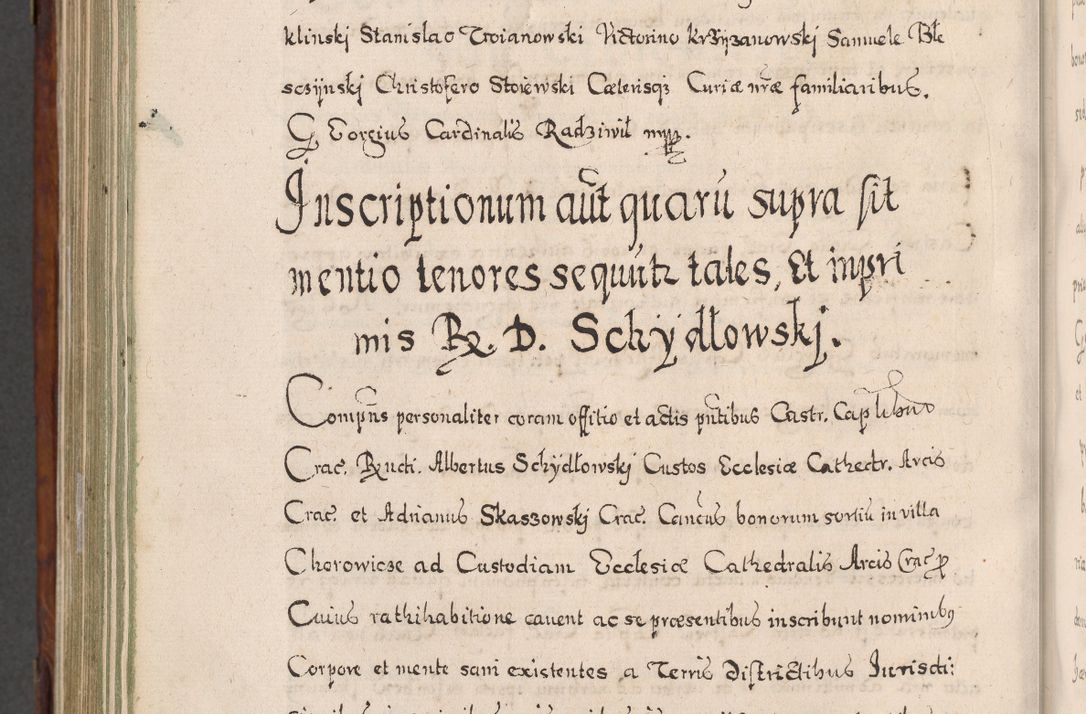 klinskj Stanislao Troianowski Victorino krzyzanowskj Samuele Ble
sczÿnskj Christofero Stoiewski Cæterisqз Curiæ nr̃æ familiaribus.
Georgius Cardinalis Radziwił mpp.
Inscriptionum aut̃ quarũ supra sit
mentio tenores sequũtz tales, Et inpri
mis Rx. D. Schÿdłowskj.
Compñs personaliter coram offitio et actis pñtibus Castr. Cap
Crac. Rndi. Albertus Schÿdłowskj Custos Ecclesiæ Cathedr. Arcis
Crac. et Adrianus Skaszowskj Crac. Cancus bonorum sortiũ in villa
Chorowicze ad Custodiam Ecclesiæ Cathedralis Arcis Crac p
Cuius rathihabitione cavent ac se præsentibus inscribunt nominibꝰ
Corpore et mente sani existentes a Terris Districtibus Jurisdi: